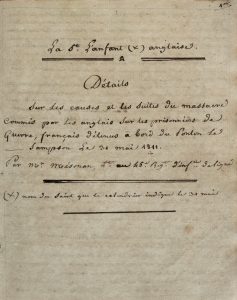 La Ste L'anfant (x) anglaise.
Détails
Sur les causes et les suites du massacre
Commis par les anglais sur les prisonniers de
Guerre, français détenus à bord du Ponton le
Sampson le 31 mai 1811.
Par Mr. Mesman au 45e Rgt d'infie de ligne
(x) nom du Saint que le calendrier indique le 31 mai